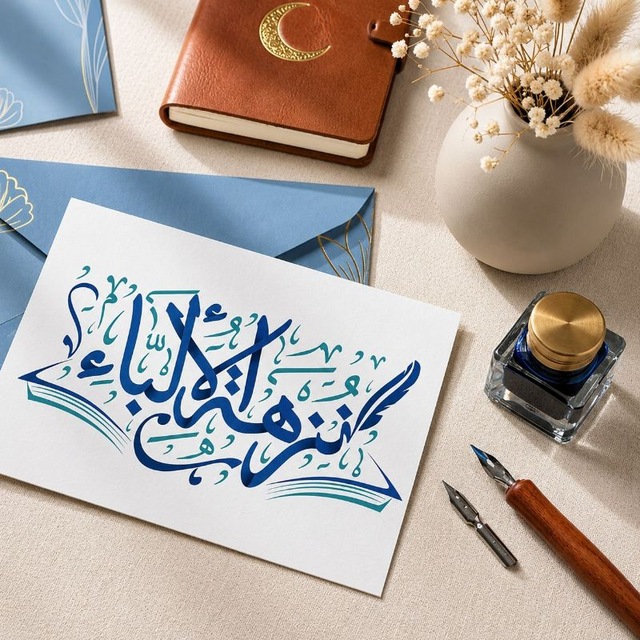 نزهة الألباء